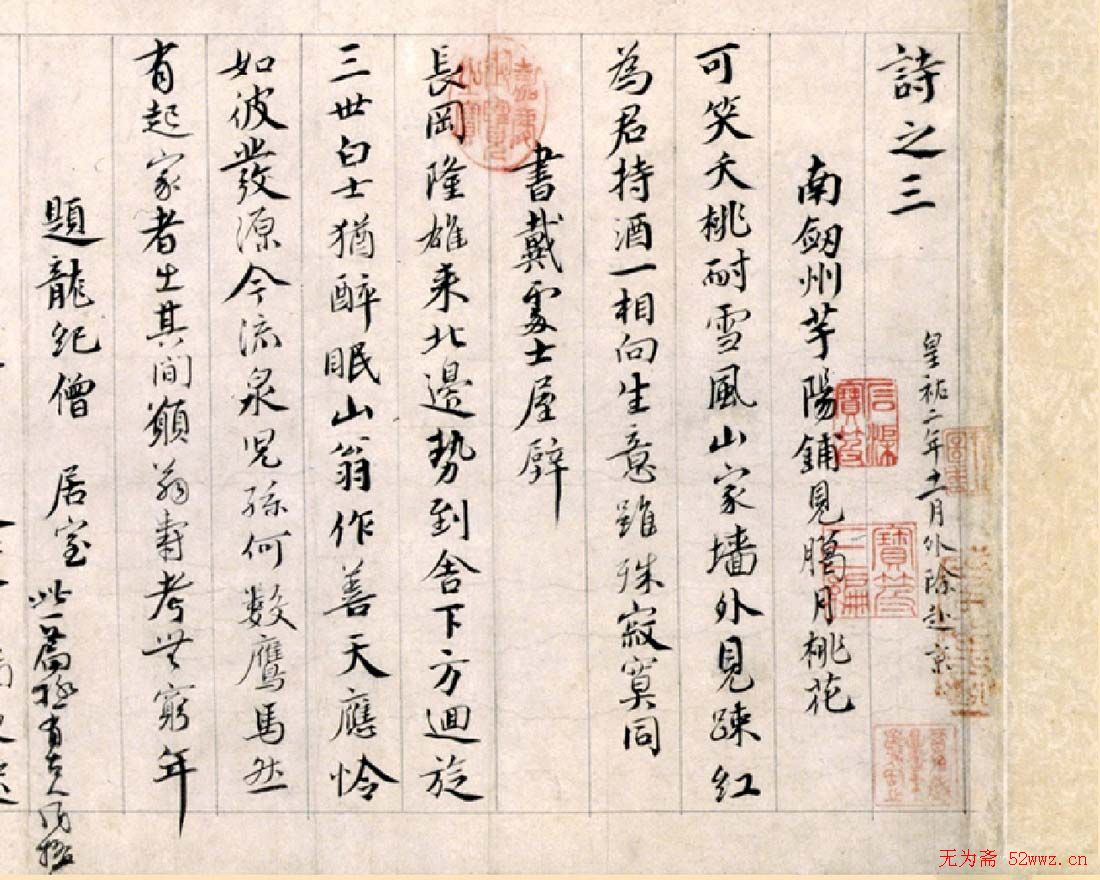 詩之三
皇祐二年十一月外除赴京
南劒州芋陽鋪見臘月桃花
可笑夭桃耐雪風山家墻外見踈红
為君持酒一相向生意雖殊寂寞同
書戴處士屋壁
長岡隆雄来北邊勢到舍下方迴旋
三世白士猶醉眠山翁作善天應怜
如彼發源今流泉児孫何數鷹馬然
有起家者生其間願翁壽考無窮年
題龍紀僧居室
此一篇極有古人風格
无为斋 52wwz.cn